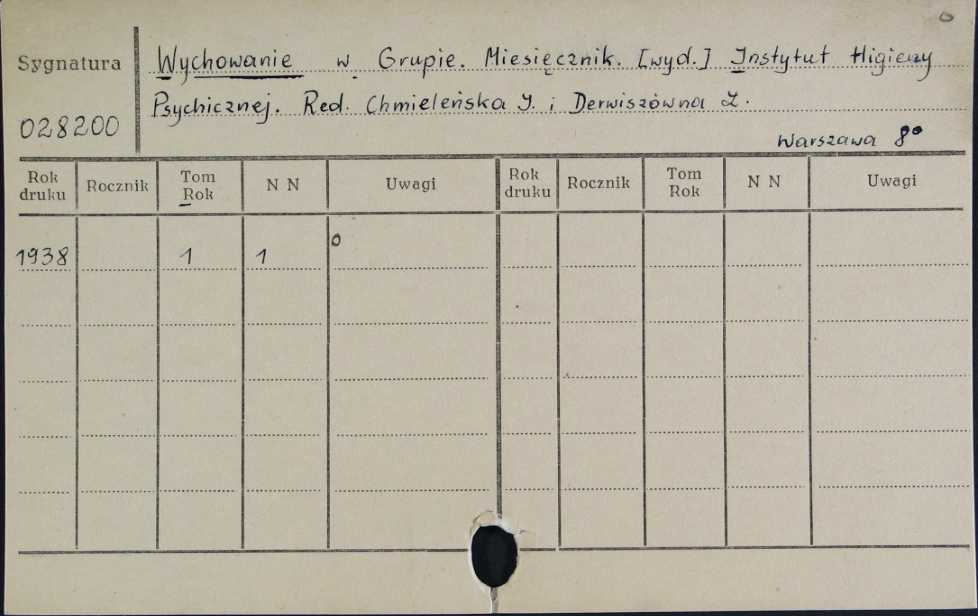 Sygnatura
028200
Wychowanie w Grupie. Miesięcznik. [wyd.] Instytut Higieny
Psychicznej. Red. Chmieleńska J. i Derwiszówna L.
Warszawa 8°
Rok druku Rocznik Tom Rok N N Uwagi Rok druku Rocznik Tom Rok N N Uwagi
1938 1 1